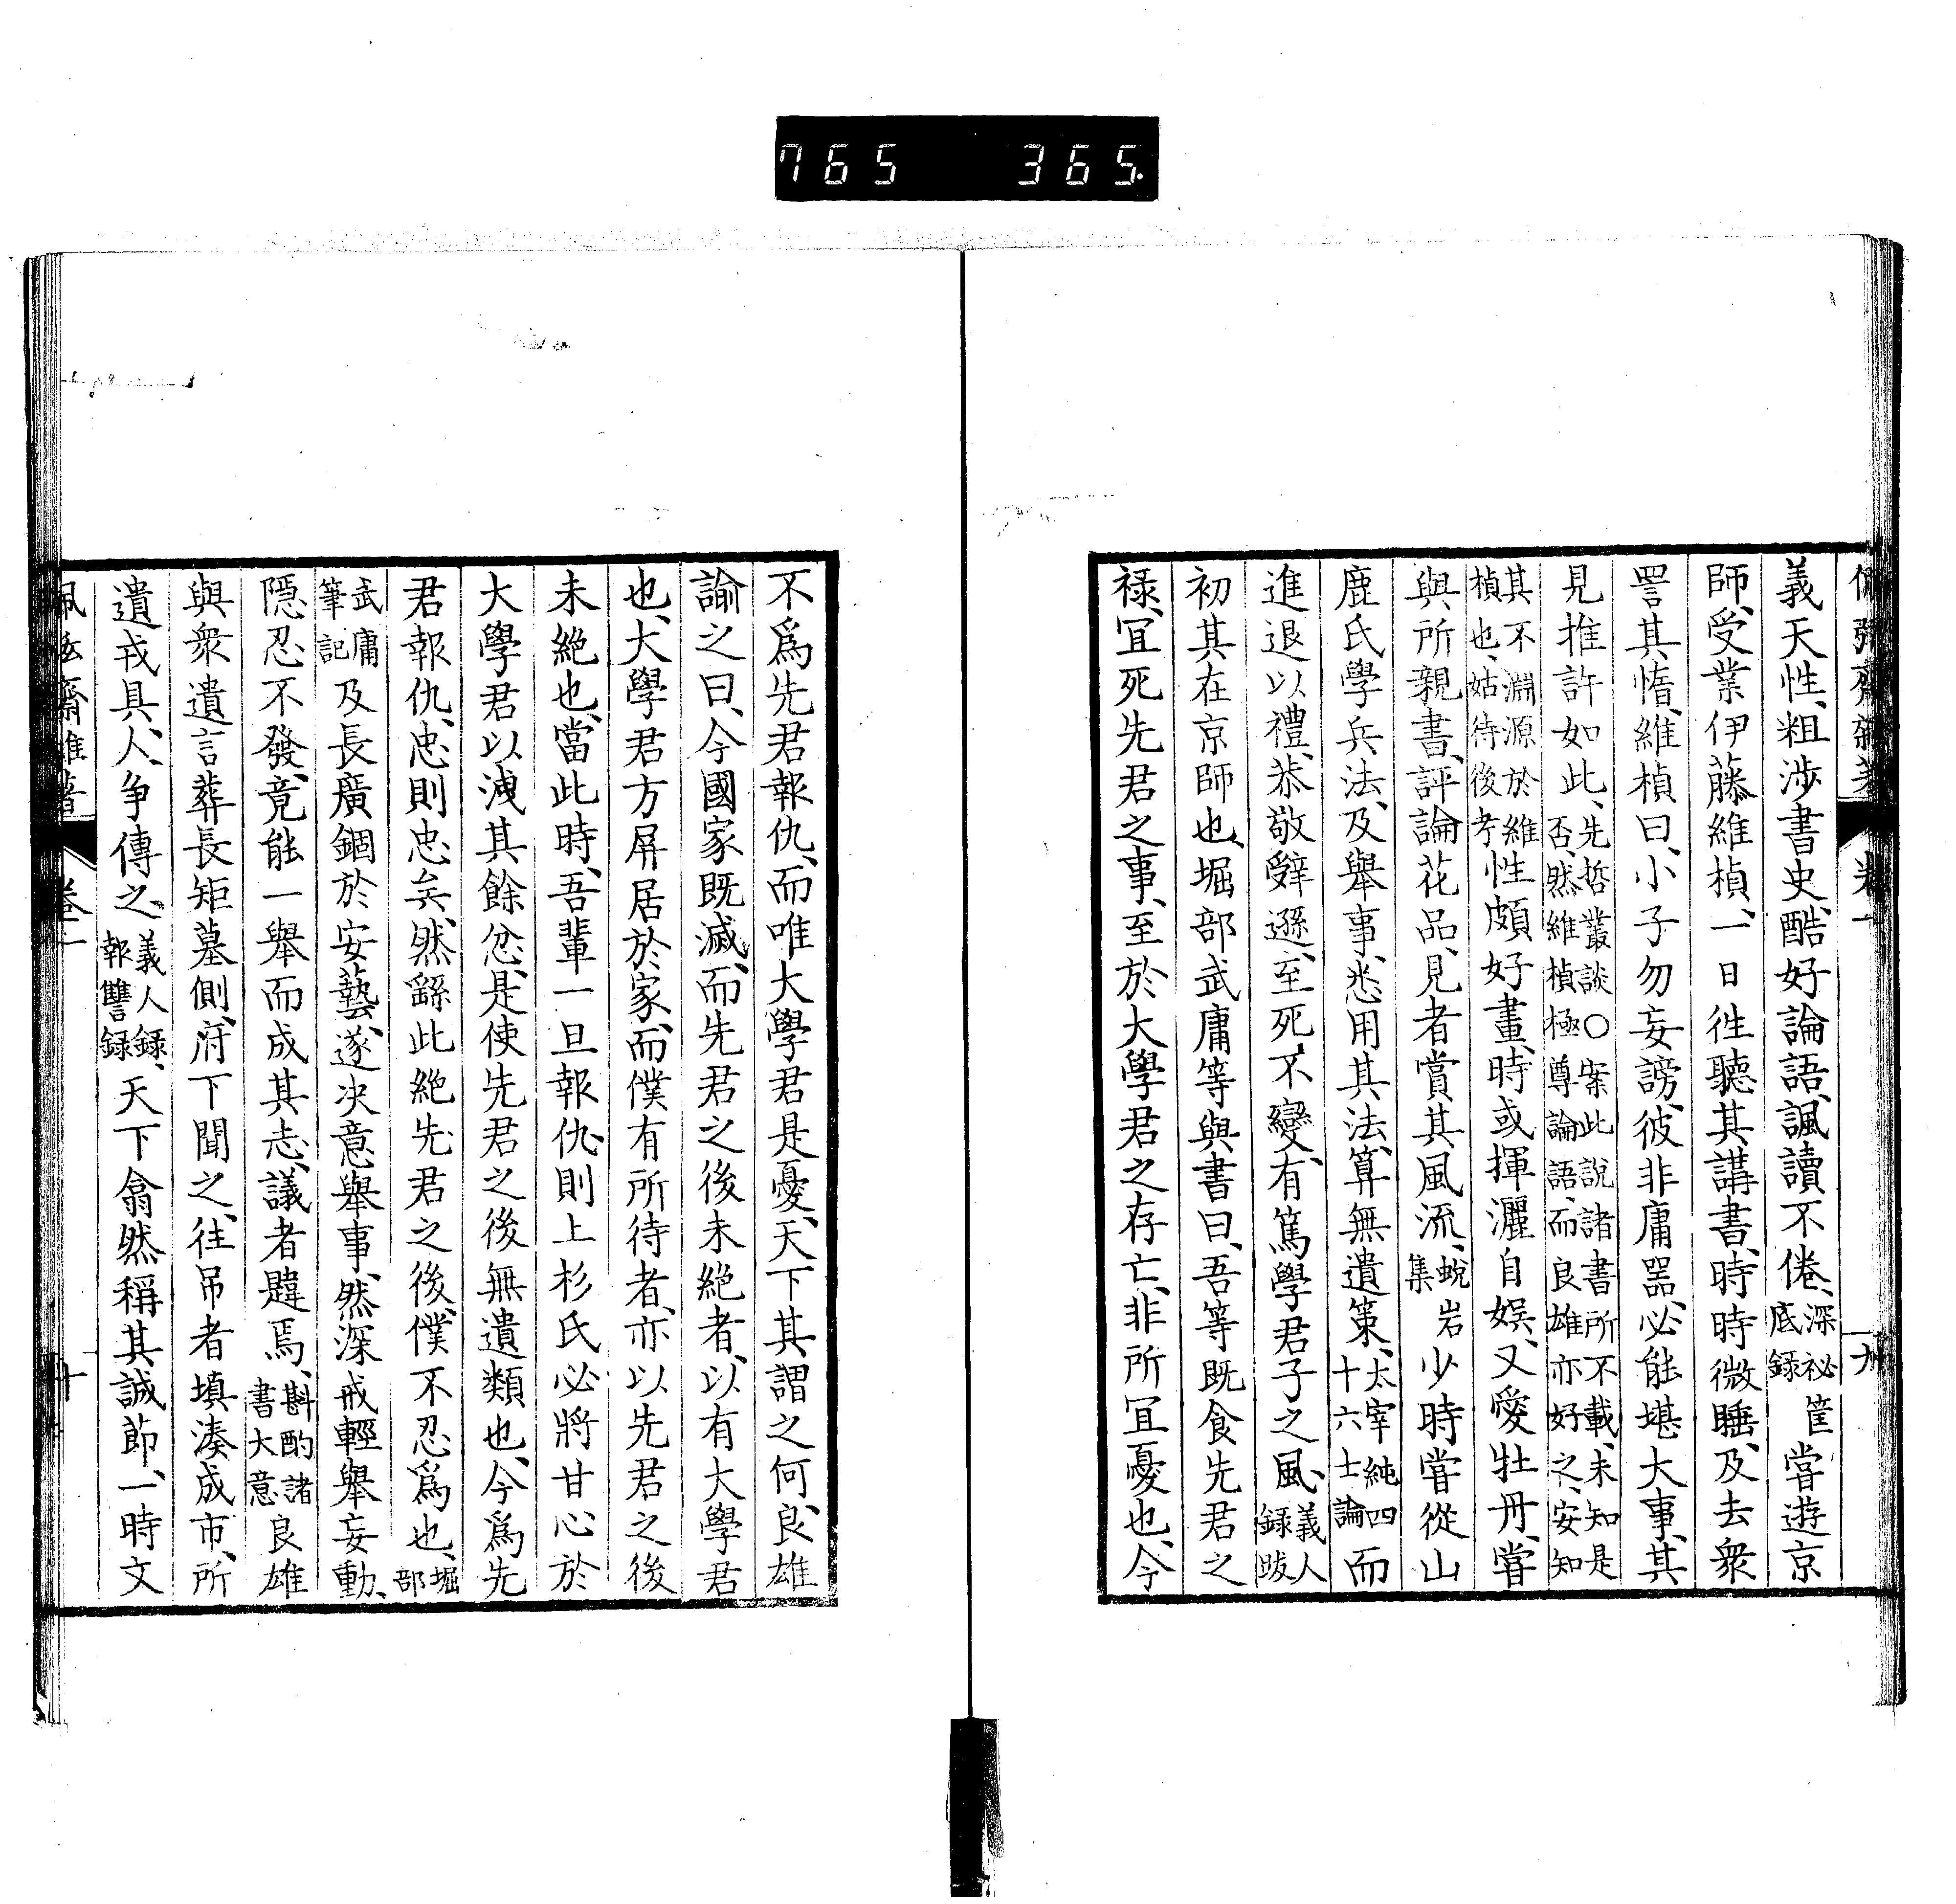 765 365.
義天性、粗涉書史、酷好論語、諷讀不倦、深祕筐底録嘗遊京
師、受業伊藤維楨、一日徃聽其講書、時時微睡、及去衆
詈其惰、維楨曰、小子勿妄謗、彼非庸器、必能堪大事、其
見推許如此、先哲叢談○案此說諸書所不載、未知是否、然維楨極尊論語、而良雄亦好之、安知
其不淵源於維楨也、姑待後考性頗好畫、時或揮灑自娛、又愛牡丹、嘗
與所親書、評論花品、見者賞其風流、蛻岩集少時嘗從山
鹿氏學兵法、及舉事、悉用其法、算無遺策、太宰純四十六士論而
進退以禮、恭敬辤遜、至死不變、有篤學君子之風、義人録跋
初其在京師也、堀部武庸等與書曰、吾等既食先君之
祿、宜死先君之事、至於大學君之存亡、非所宜憂也、今
不爲先君報仇、而唯大學君是憂、天下其謂之何、良雄
諭之曰、今國家既滅、而先君之後未絕者、以有大學君
也、大學君方屏居於家、而僕有所待者、亦以先君之後
未絕也、當此時、吾輩一旦報仇、則上杉氏必將甘心於
大學君以洩其餘忿、是使先君之後無遺類也、今爲先
君報仇、忠則忠矣、然繇此絕先君之後、僕不忍爲也、堀部
武庸筆記及長廣錮於安藝、遂决意舉事、然深戒輕舉妄動、
隱忍不發、竟能一舉而成其志、議者韙焉、斟酌諸書大意良雄
與衆遺言葬長矩墓側、府下聞之、往吊者填湊成市、所
遺戎具、人爭傳之、義人録、報讐録、天下翕然稱其誠節、一時文
齋雜著 卷一 十